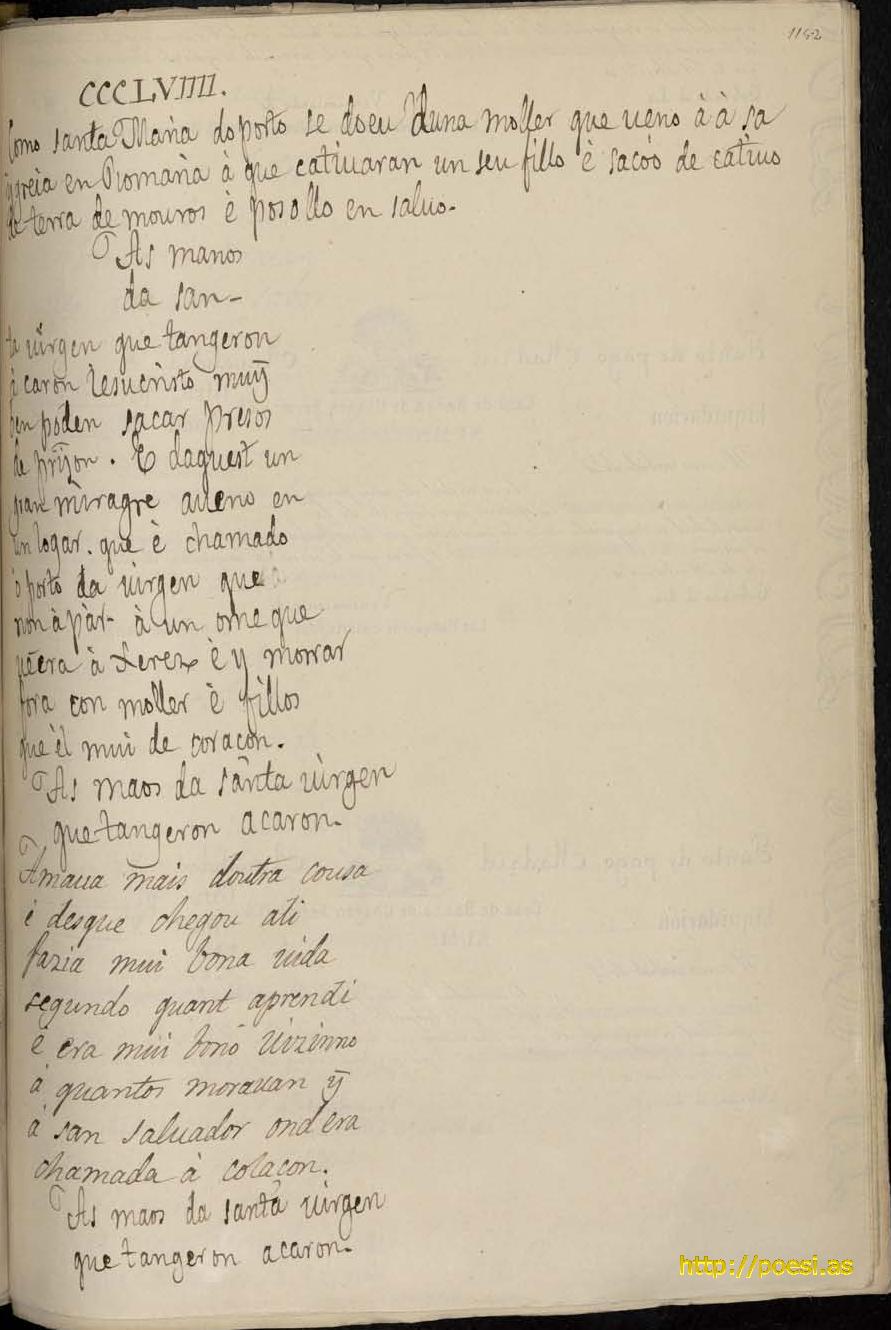 1152
CCCLVIIII.
Como santa Maria do porto se doeu duna moller que ueno à à sa
igreia en Romania à que catiuaran un seu fillo è sacóo de catiuo
de terra de mouros è posollo en saluo.
As manos
da san-
ta uirgen que tangeron
a caron iesucristo muy
ben poden sacar presos
de prijon. E daquest un
gran miragre aueno en
un logar. que è chamado
o porto da uirgen que
non à pàr à un ome que
uẽera à Xerez è y morrar
fora con moller è fillos
que el mui de coracon.
As maos da santa uirgen
que tangeron acaron.
Amaua mais doutra cousa
è desque chegou ali
fazia mui bona uida
segundo quant aprendi
è era mui bono uizinno
à quantos morauan ỹ
à san saluador ond era
chamada à colacon.
As maos da santa uirgen
que tangeron acaron.
http://poesi.as